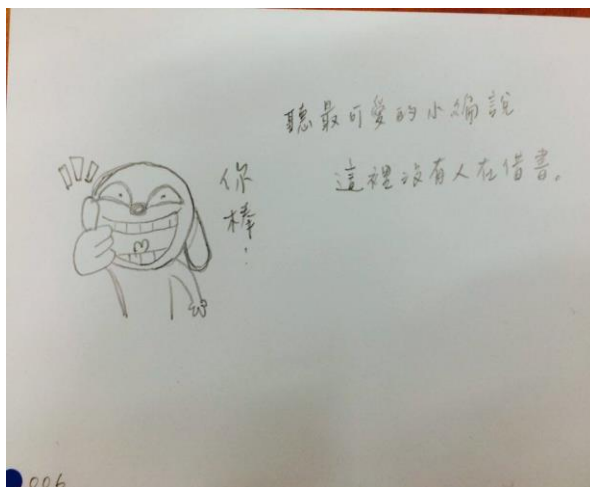 聽最可愛的小編說
這裡沒有人在借書。
你棒!
006